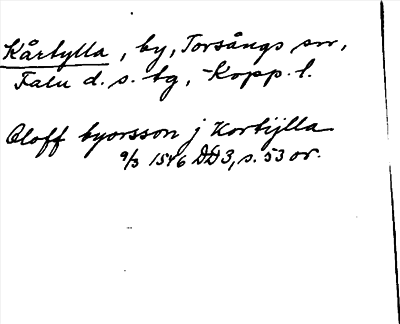 Kårtylla, by, Torsångs sn,
Falu d. s. tg, Kopp. l.
Oloff byorsson j Kortijlla
9/3 1546 DD3, s. 53 or.